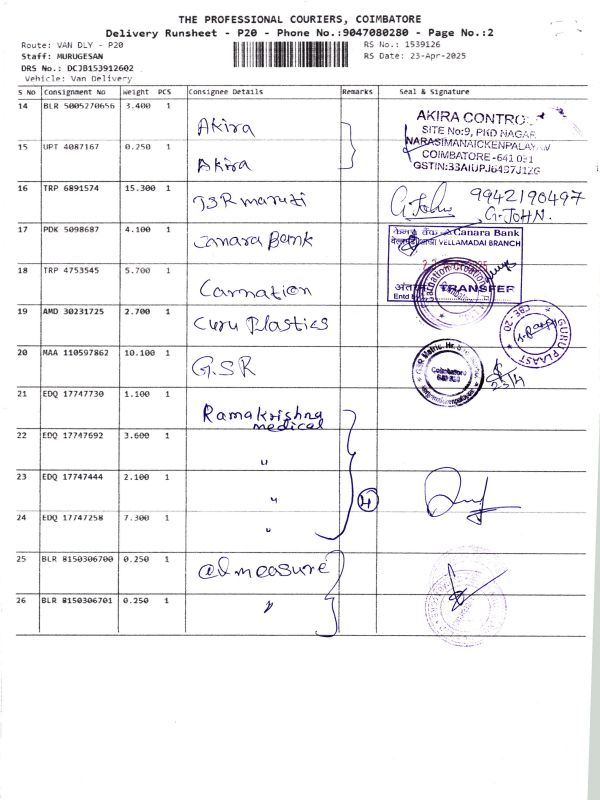 THE PROFESSIONAL COURIERS, COIMBATORE
Delivery Runsheet - P20 - Phone No.:9047080280 - Page No.:2
Route: VAN DLY - P20
Staff: MURUGESAN
DRS No.: DCJB153912602
Vehicle: Van Delivery
RS No.: 1539126
RS Date: 23-Apr-2025
S No Consignment No Weight PCS Consignee Details Remarks Seal & Signature
14 BLR 5005270656 3.400 1 Akira
15 UPT 4087167 0.250 1 Akira
AKIRA CONTROL
SITE No:9, PKD NAGAR
NARASIMANAICKENPALAYAM
COIMBATORE-641 031
16 TRP 6891574 15.300 1 JSR maruti G. John 9942190497
G. JOHN.
17 PDK 5098687 4.100 1 Canara Bank
Canara Bank
VELLAMADAI BRANCH
TRANSFER
18 TRP 4753545 5.700 1 Carnation
Carnation Creation
19 AMD 30231725 2.700 1 Guru Plastics
GURU PLAAST
CBE - 20
20 MAA 110597862 10.100 1 G.S.R
Coimbatore
23/4
21 EDQ 17747730 1.100 1 Ramakrishna
medical
22 EDQ 17747692 3.600 1 "
23 EDQ 17747444 2.100 1 "
4
24 EDQ 17747258 7.300 1 "
25 BLR 8150306700 0.250 1 @dmeasure
26 BLR 8150306701 0.250 1 "